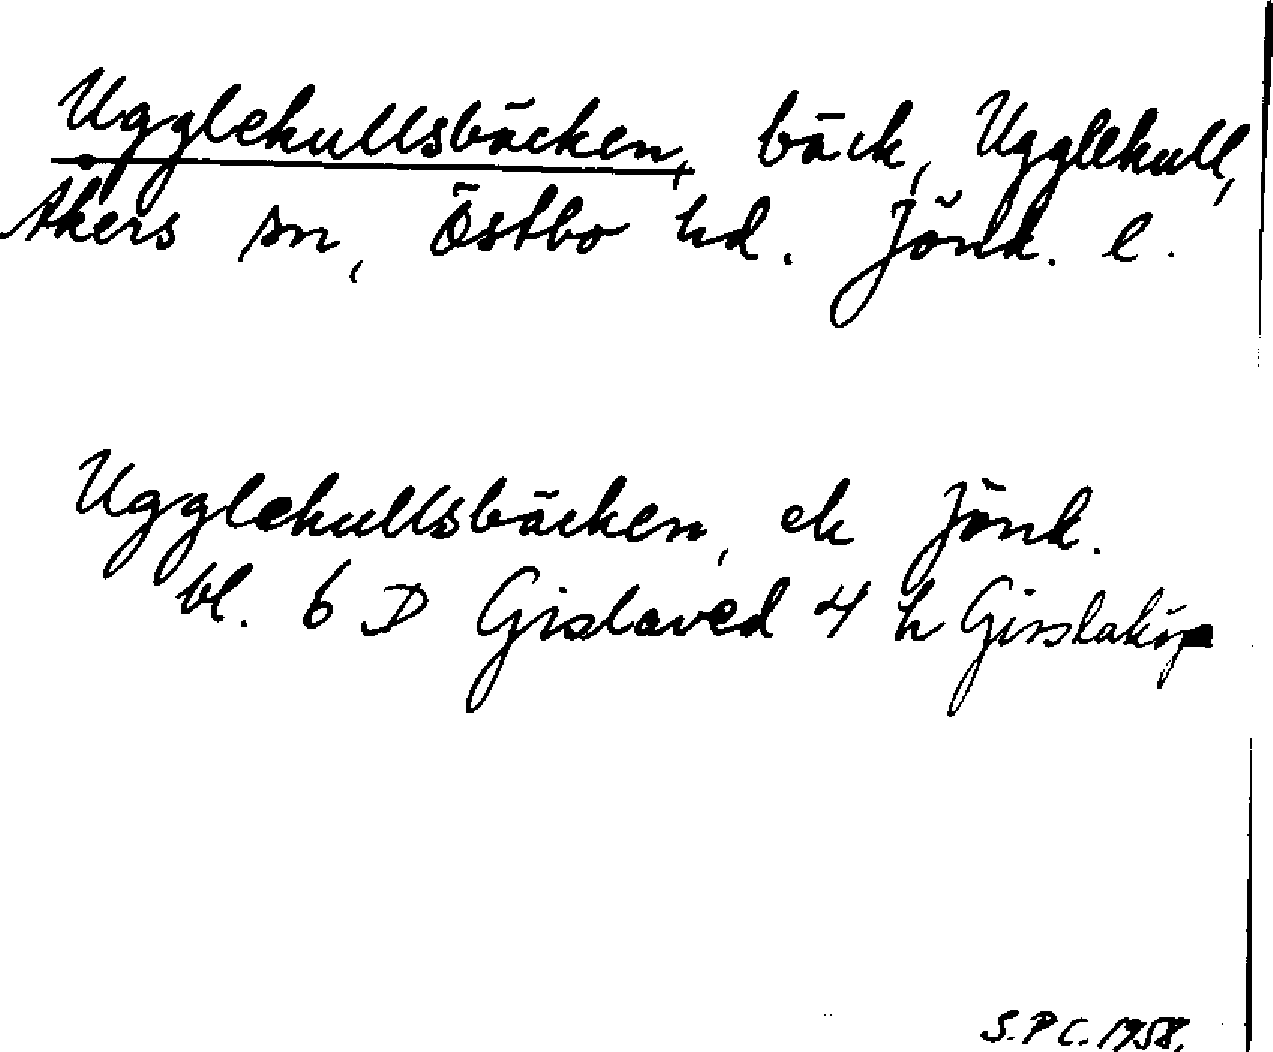 Ugglekullsbäcken, bäck, Ugglekull,
Åkers sn, Östbo hd. Jönk. l.
Ugglekullsbäcken, ek Jönk.
bl. 6 D Gislaved 4 h Gisslaköp
S.P C. 1958.